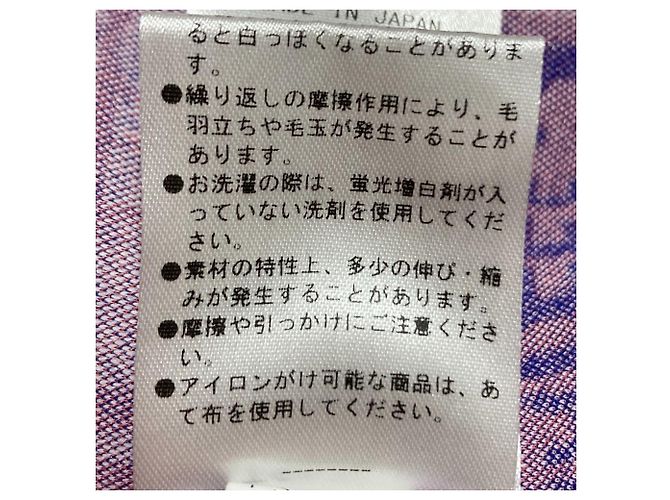 MADE IN JAPAN
ると白っぽくなることがありま
す。
●繰り返しの摩擦作用により、毛
羽立ちや毛玉が発生することが
あります。
●お洗濯の際は、蛍光増白剤が入
っていない洗剤を使用してくだ
さい。
●素材の特性上、多少の伸び・縮
みが発生することがあります。
●摩擦や引っかけにご注意くださ
い。
●アイロンがけ可能な商品は、あ
て布を使用してください。
----------